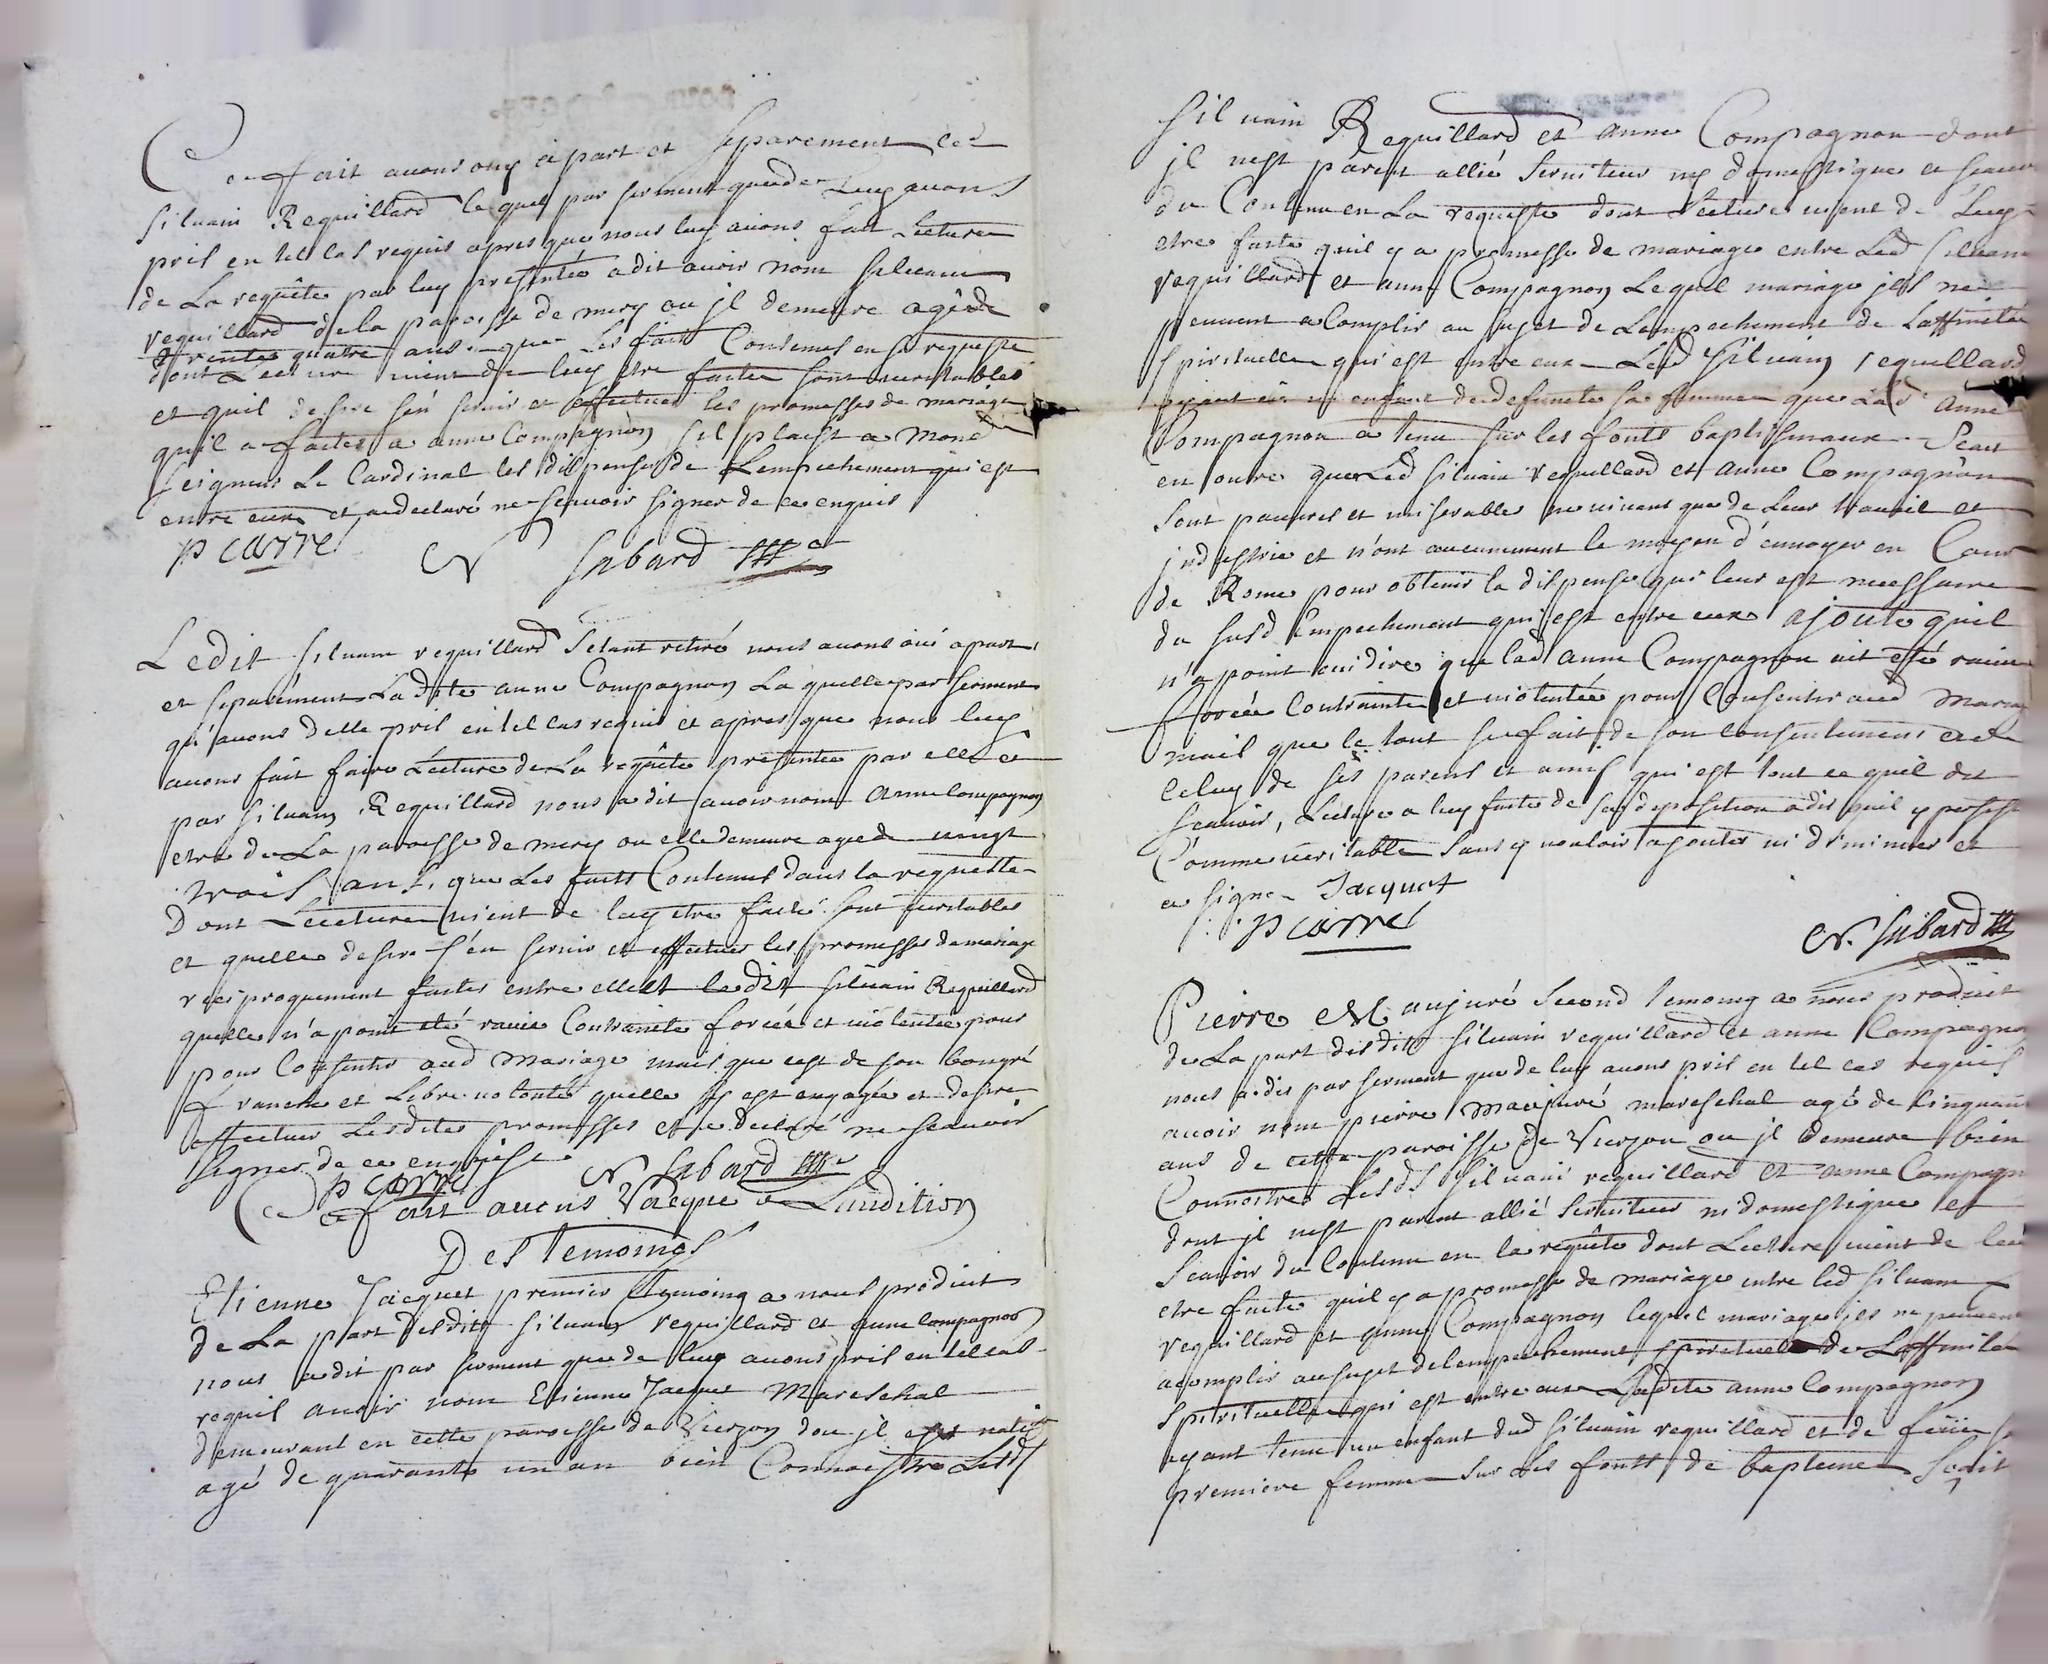 Ce fait avons ouy apart et separement led
Silvain Requillard lequel par serment que de luy avons
pris en tel cas requis apres que nous luy avons fait Lecture
de La requête par luy presentée a dit avoir nom silvain
requillard de la paroisse de mery ou jl demeure agé de
trente quatre ans que Les faits Contenus en sa requeste
dont Lecture vient de luy etre faitte sont veritables
et quil desire sen servir et effectuer les promesses de mariage
quil a faites a anne Compagnon sil plaist a Mond
seigneur Le Cardinal les dispenser de Lempechement qui est
entre eux et a declaré ne scavoir signer de ce enquis
P carré N Subard
Ledit silvain requillard setant retiré nous avons oui apart
et separément Ladite anne Compagnon La quelle par serment
qu'avons delle pris en tel cas requis et apres que nous luy
avons fait faire Lecture de La requête presentée par elle et
par silvain Requillard nous a dit avoir nom Anne Compagnon
etre de La paroisse de mery ou elle demeure agee de vingt
trois ans, que Les faits Contenus dans la requette
Dont Lecture vient de luy etre faite sont veritables
et quelle desire s'en servir et effectuer les promesses de mariage
reciproquement faites entre elle et ledit silvain Requillard
quelle n'a point eté ravie Contrainte forcée et violentée pour
pour Consentir aud mariage mais que cest de son bongré
franche et Libre volonté quelle sy est engagée et desire
effectuer Lesdites promesses et a declaré ne scavoir
signer de ce enquise
P carré N Subard
Ce fait avons Vacque a Laudition
Des Temoins
Etienne Jacquet premier temoing a nous produit
de La part desdits silvain requillard et anne Compagnon
nous a dit par serment que de luy avons pris en tel cas
requis avoir nom Etienne Jacquet Mareschal
demeurant en cette paroisse de Vierzon dou jl est natif
agé de quarante un an bien Connoistre Lesds
Silvain Requillard et anne Compagnon dont
jl nest parent allié serviteur ny domestique et scavoir
du Contenu en La requeste dont Lecture vient de Luy
etre faite quil y a promesse de mariage entre Led silvain
requillard et anne Compagnon Lequel mariage jls ne
peuvent acomplir au sujet de Lempechement de Laffinité
spirituelle qui est entre eux Led silvain requillard
ayant eü un enfant de defuncte sa femme que Lad Anne
Compagnon a tenu sur les fonts baptismaux Scait
en outre que Led silvain requillard et anne Compagnon
sont pauvres et miserables ne vivans que de Leur travail et
jndustrie et n'ont aucunement le moyen d'envoyer en Cour
de Rome pour obtenir la dispense qui leur est necessaire
du susd Empechement qui est entre eux ajoute quil
n'a point oui dire que lad anne Compagnon ait eté ravie
forcée Contrainte et violentée pour Consentir aud Maria
mais que le tout se fait de son consentement et de
celuy de ses parens et amis qui est tout ce quil dit
scavoir, Lecture a luy faite de sa deposition a dit quil y persiste
Comme veritable sans y vouloir ajouter ni diminuer et
a signe Jacquet
P carré
N. Subard
Pierre Maujuré second temoing a nous produit
de La part desdits silvain requillard et anne Compagnon
nous a dit par serment que de luy avons pris en tel cas requis
avoir nom pierre Maujuré mareschal agé de cinquante
ans de cette paroisse de Vierzon ou jl demeure bien
Connoitre Lesds silvain requillard et anne Compagn
dont jl nest parent allié serviteur ni domestique et
scavoir du Contenu en la requête dont Lecture vient de luy
etre faite quil y a promesse de mariage entre led silvain
requillard et anne Compagnon lequel mariage jls ne peuvent
acomplir au sujet de lempechement spirituelle de Laffinité
spirituelle qui est entre eux Ladite anne Compagnon
ayant tenu un enfant dud silvain requillard et de feüe sa
premiere femme sur Les fonts de bapteme Scait